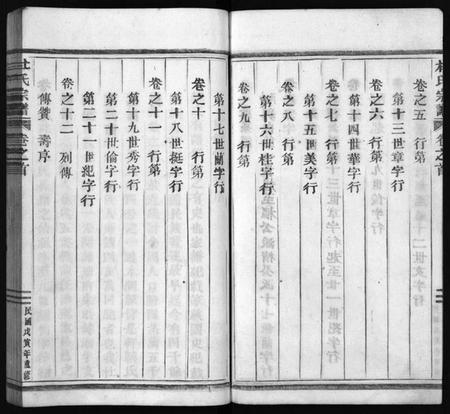 卷之五 行第
第十三世章字行
卷之六 行第
第十四世華字行
卷之七 行第
第十五世美字行
卷之八 行第
第十六世桂字行
卷之九 行第
第十七世蘭字行
卷之十 行第
第十八世挺字行
卷之十一 行第
第十九世秀字行
第二十世倫字行
第二十一世紀字行
卷之十二 列傳
傳贊 壽序
杜氏宗譜
卷之首
民國戊寅年重修